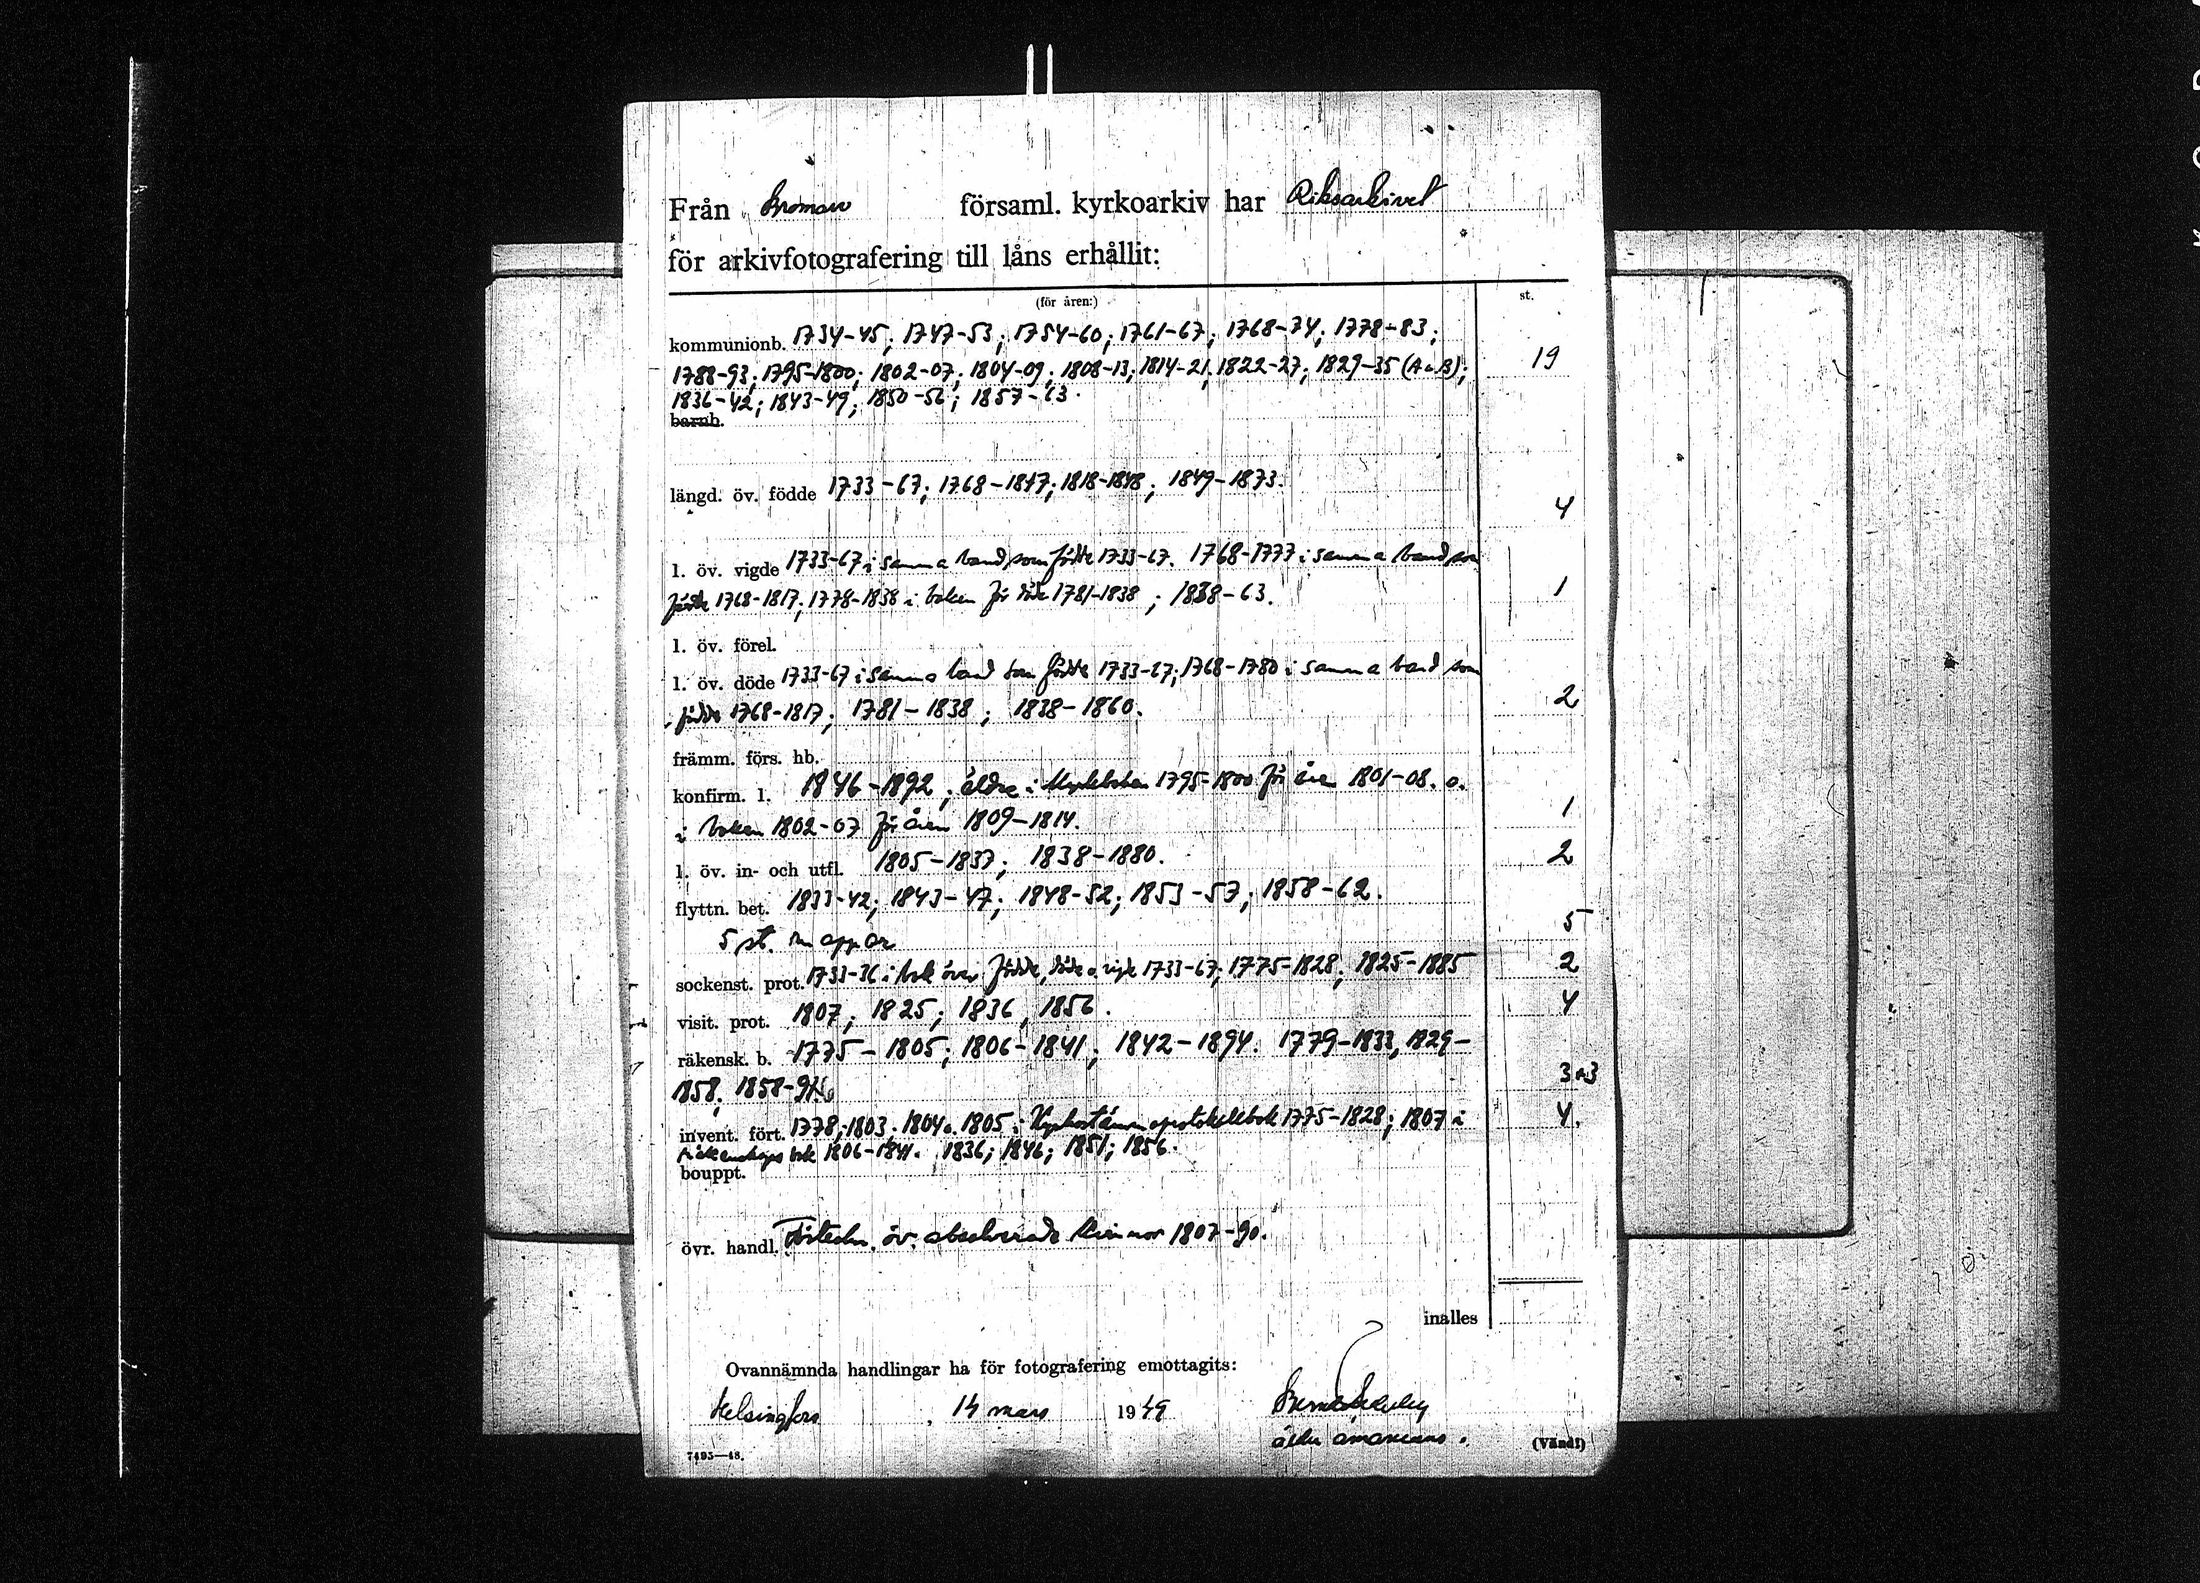 Från Bromarv församl. kyrkoarkiv har Riksarkivet
för arkivfotografering till låns erhållit:
(för åren:) st.
kommunionb. 1734-45; 1747-53; 1754-60; 1761-67; 1768-74; 1778-83;
1788-93; 1795-1800; 1802-07; 1804-09; 1808-13; 1814-21; 1822-27; 1829-35 (A o B); 19
1836-42; 1843-49; 1850-56; 1857-63.
barnb.
längd. öv. födde 1733-67; 1768-1817; 1818-1848; 1849-1873.
4
l. öv. vigde 1733-67 i samma band som födde 1733-67. 1768-1777 i samma band som
födde 1768-1817; 1778-1838 i boken för döde 1781-1838; 1838-63. 1
l. öv. förel.
l. öv. döde 1733-67 i samma band som födde 1733-67; 1768-1780 i samma band som
födde 1768-1817; 1781-1838; 1838-1860. 2
främm. förs. hb.
konfirm. l. 1846-1892; äldre i 1795-1800 för åren 1801-08. o.
i boken 1802-07 för åren 1809-1814. 1
l. öv. in- och utfl. 1805-1837; 1838-1880. 2
flyttn. bet. 1833-42; 1843-47; 1848-52; 1853-57; 1858-62.
5 st. mappar 5
sockenst. prot. 1733-36 i bok över födde, döde o vigde 1733-67; 1775-1828; 1825-1885 2
visit. prot. 1807; 1825; 1836, 1856. 4
räkensk. b. 1775-1805; 1806-1841; 1842-1894. 1779-1833, 1829-
1858; 1858- 3+3
invent. fört. 1778; 1803. 1804 o. 1805 i Kyrkostämmoprotokollsbok 1775-1828; 1807 i 4.
räkenskapsbok 1806-1841. 1836; 1846; 1851; 1856.
bouppt.
övr. handl. Förteckn. öv. absolverade kvinnor 1807-90.
inalles
Ovannämnda handlingar ha för fotografering emottagits:
Helsingfors, 14 mars 1949
äldre amanuens.
7495—48. (Vänd!)